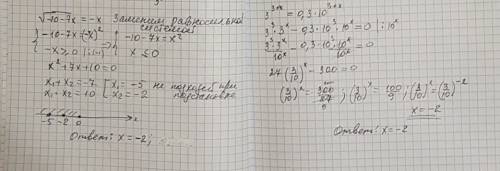 √-10-7x = -x Заменим равносильной
системой
{-10-7x=(-x)² {-10-7x=x²
-x ≥ 0 |:(-1) x ≤ 0
x²+7x+10=0
x₁+x₂=-7 [x₁=-5 не подходит при
x₁·x₂=10 [x₂=-2 подстановке
-5 -2 0 x
Ответ: x=-2;
3^(3+x) = 0,3·10^(3+x)
3³·3ˣ - 0,3·10³·10ˣ=0 |:10ˣ
3³·3ˣ/10ˣ - 0,3·10³·10ˣ/10ˣ = 0
27(3/10)ˣ - 300=0
(3/10)ˣ = 300/27; (3/10)ˣ = 100/9; (3/10)ˣ = (3/10)⁻²
x=-2
Ответ: x=-2